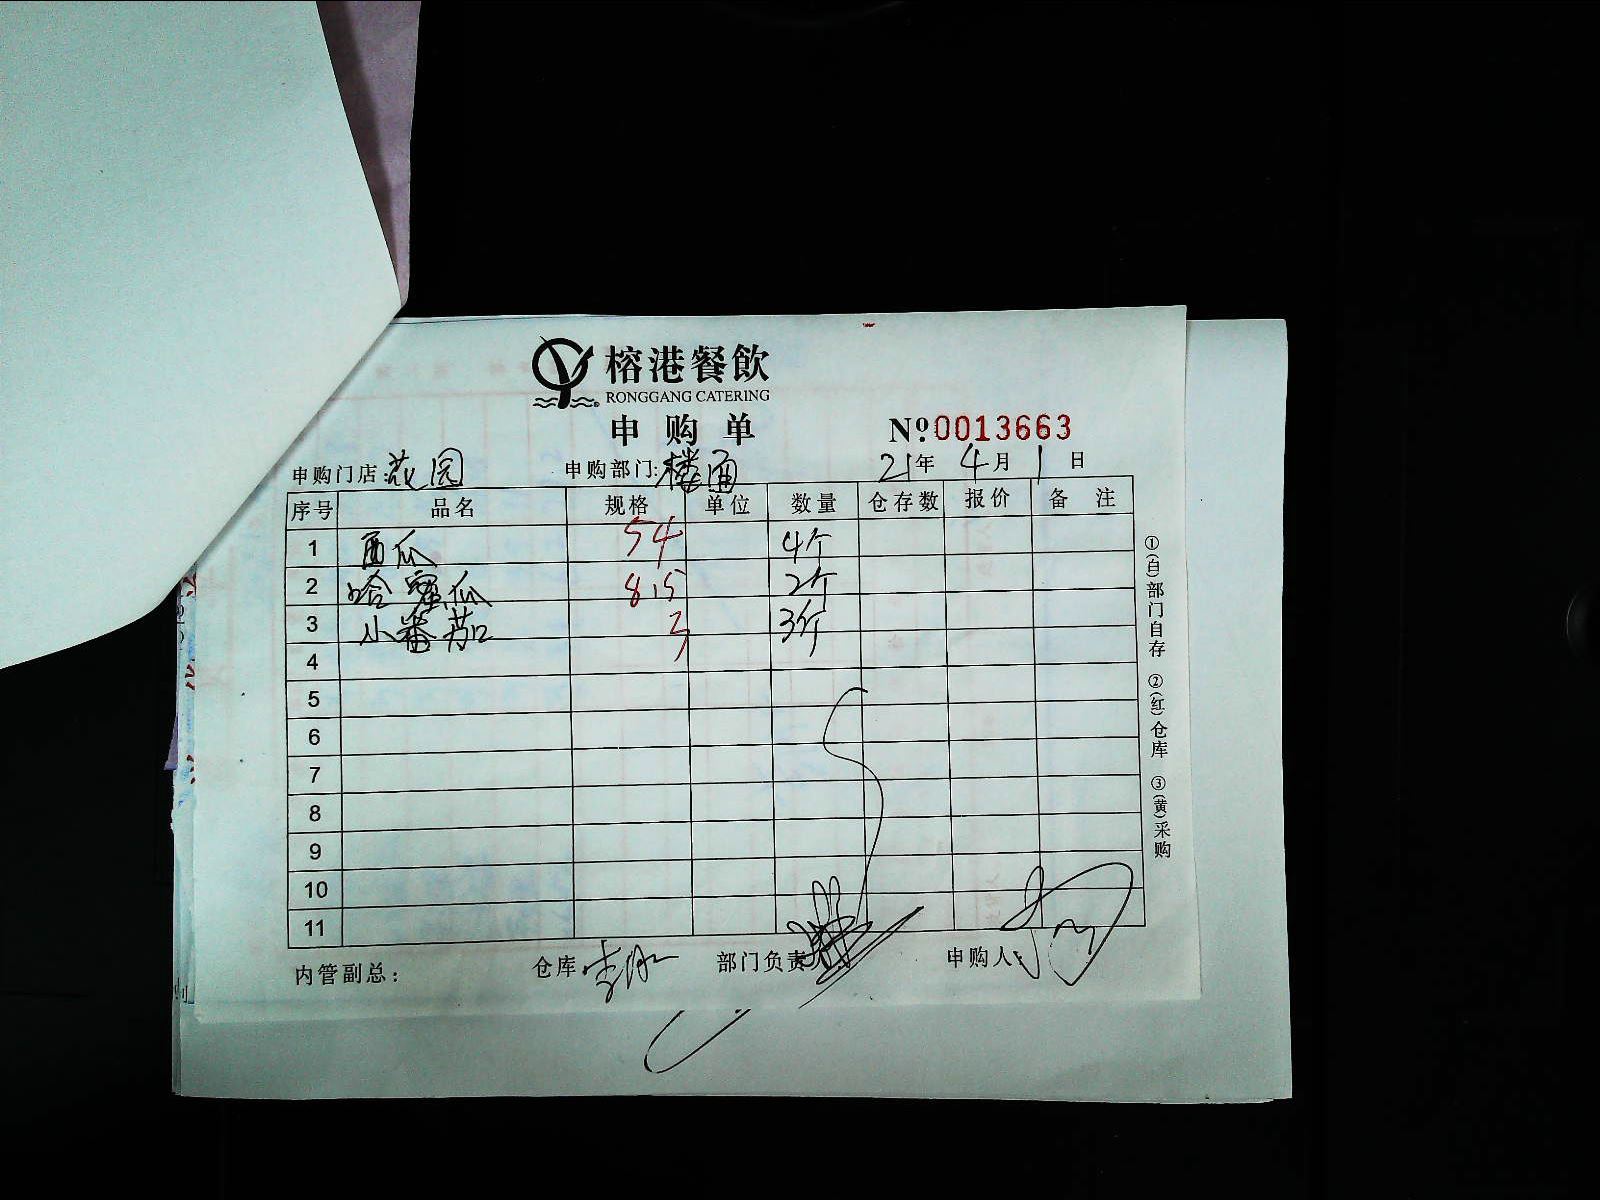 榕港餐飲
RONGGANG CATERING
申购单
№0013663
申购门店:花园 申购部门:楼面 21年4月1日
序号 品名 规格 单位 数量 仓存数 报价 备注
1 西瓜 54 4个
2 哈蜜瓜 8.15 2个
3 小番茄 3斤
4
5
6
7
8
9
10
11
内管副总: 仓库 部门负责 申购人
①(白)部门自存 ②(红)仓库 ③(黄)采购